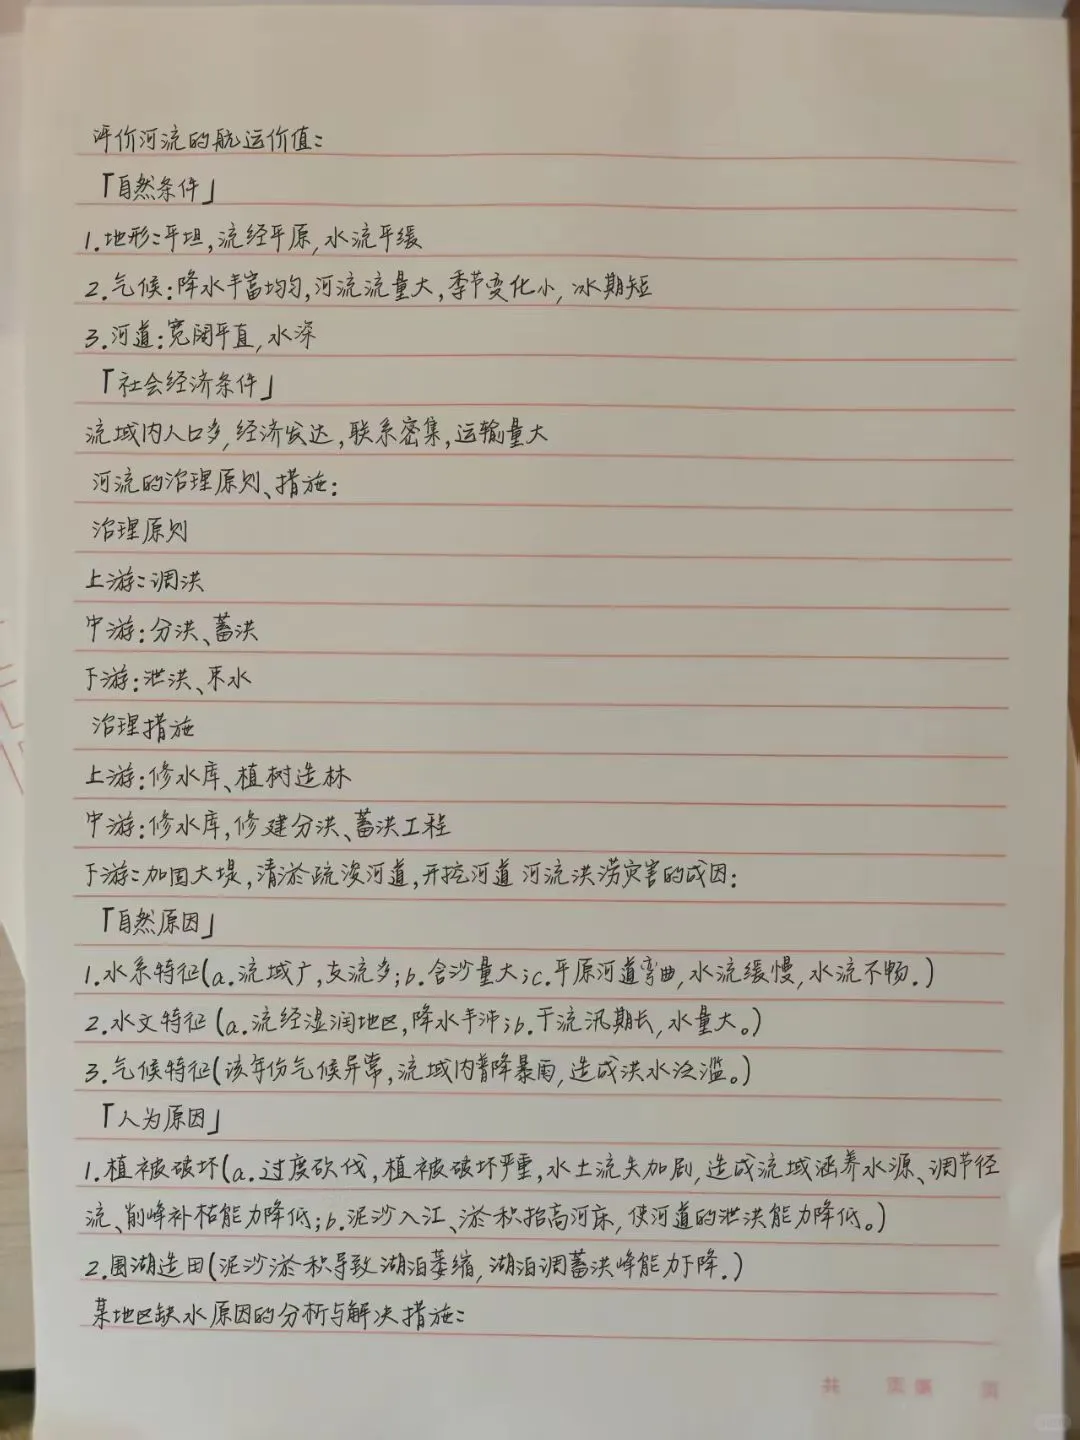 评价河流的航运价值:
「自然条件」
1.地形:平坦,流经平原,水流平缓
2.气候:降水丰富均匀,河流流量大,季节变化小,冰期短
3.河道:宽阔平直,水深
「社会经济条件」
流域内人口多,经济发达,联系密集,运输量大
河流的治理原则、措施:
治理原则
上游:调洪
中游:分洪、蓄洪
下游:泄洪、束水
治理措施
上游:修水库、植树造林
中游:修水库,修建分洪、蓄洪工程
下游:加固大堤,清淤疏浚河道,开挖河道 河流洪涝灾害的成因:
「自然原因」
1.水系特征(a.流域广,支流多;b.含沙量大;c.平原河道弯曲,水流缓慢,水流不畅.)
2.水文特征(a.流经湿润地区,降水丰沛;b.干流汛期长,水量大。)
3.气候特征(该年份气候异常,流域内普降暴雨,造成洪水泛滥。)
「人为原因」
1.植被破坏(a.过度砍伐,植被破坏严重,水土流失加剧,造成流域涵养水源、调节径
流、削峰补枯能力降低;b.泥沙入江、淤积抬高河床,使河道的泄洪能力降低。)
2.围湖造田(泥沙淤积导致湖泊萎缩,湖泊调蓄洪峰能力下降.)
某地区缺水原因的分析与解决措施:
共 页 第 页